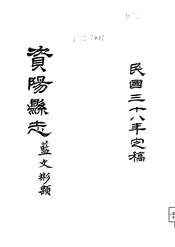 民國三十八年定稿
資陽縣志
藍文彬題